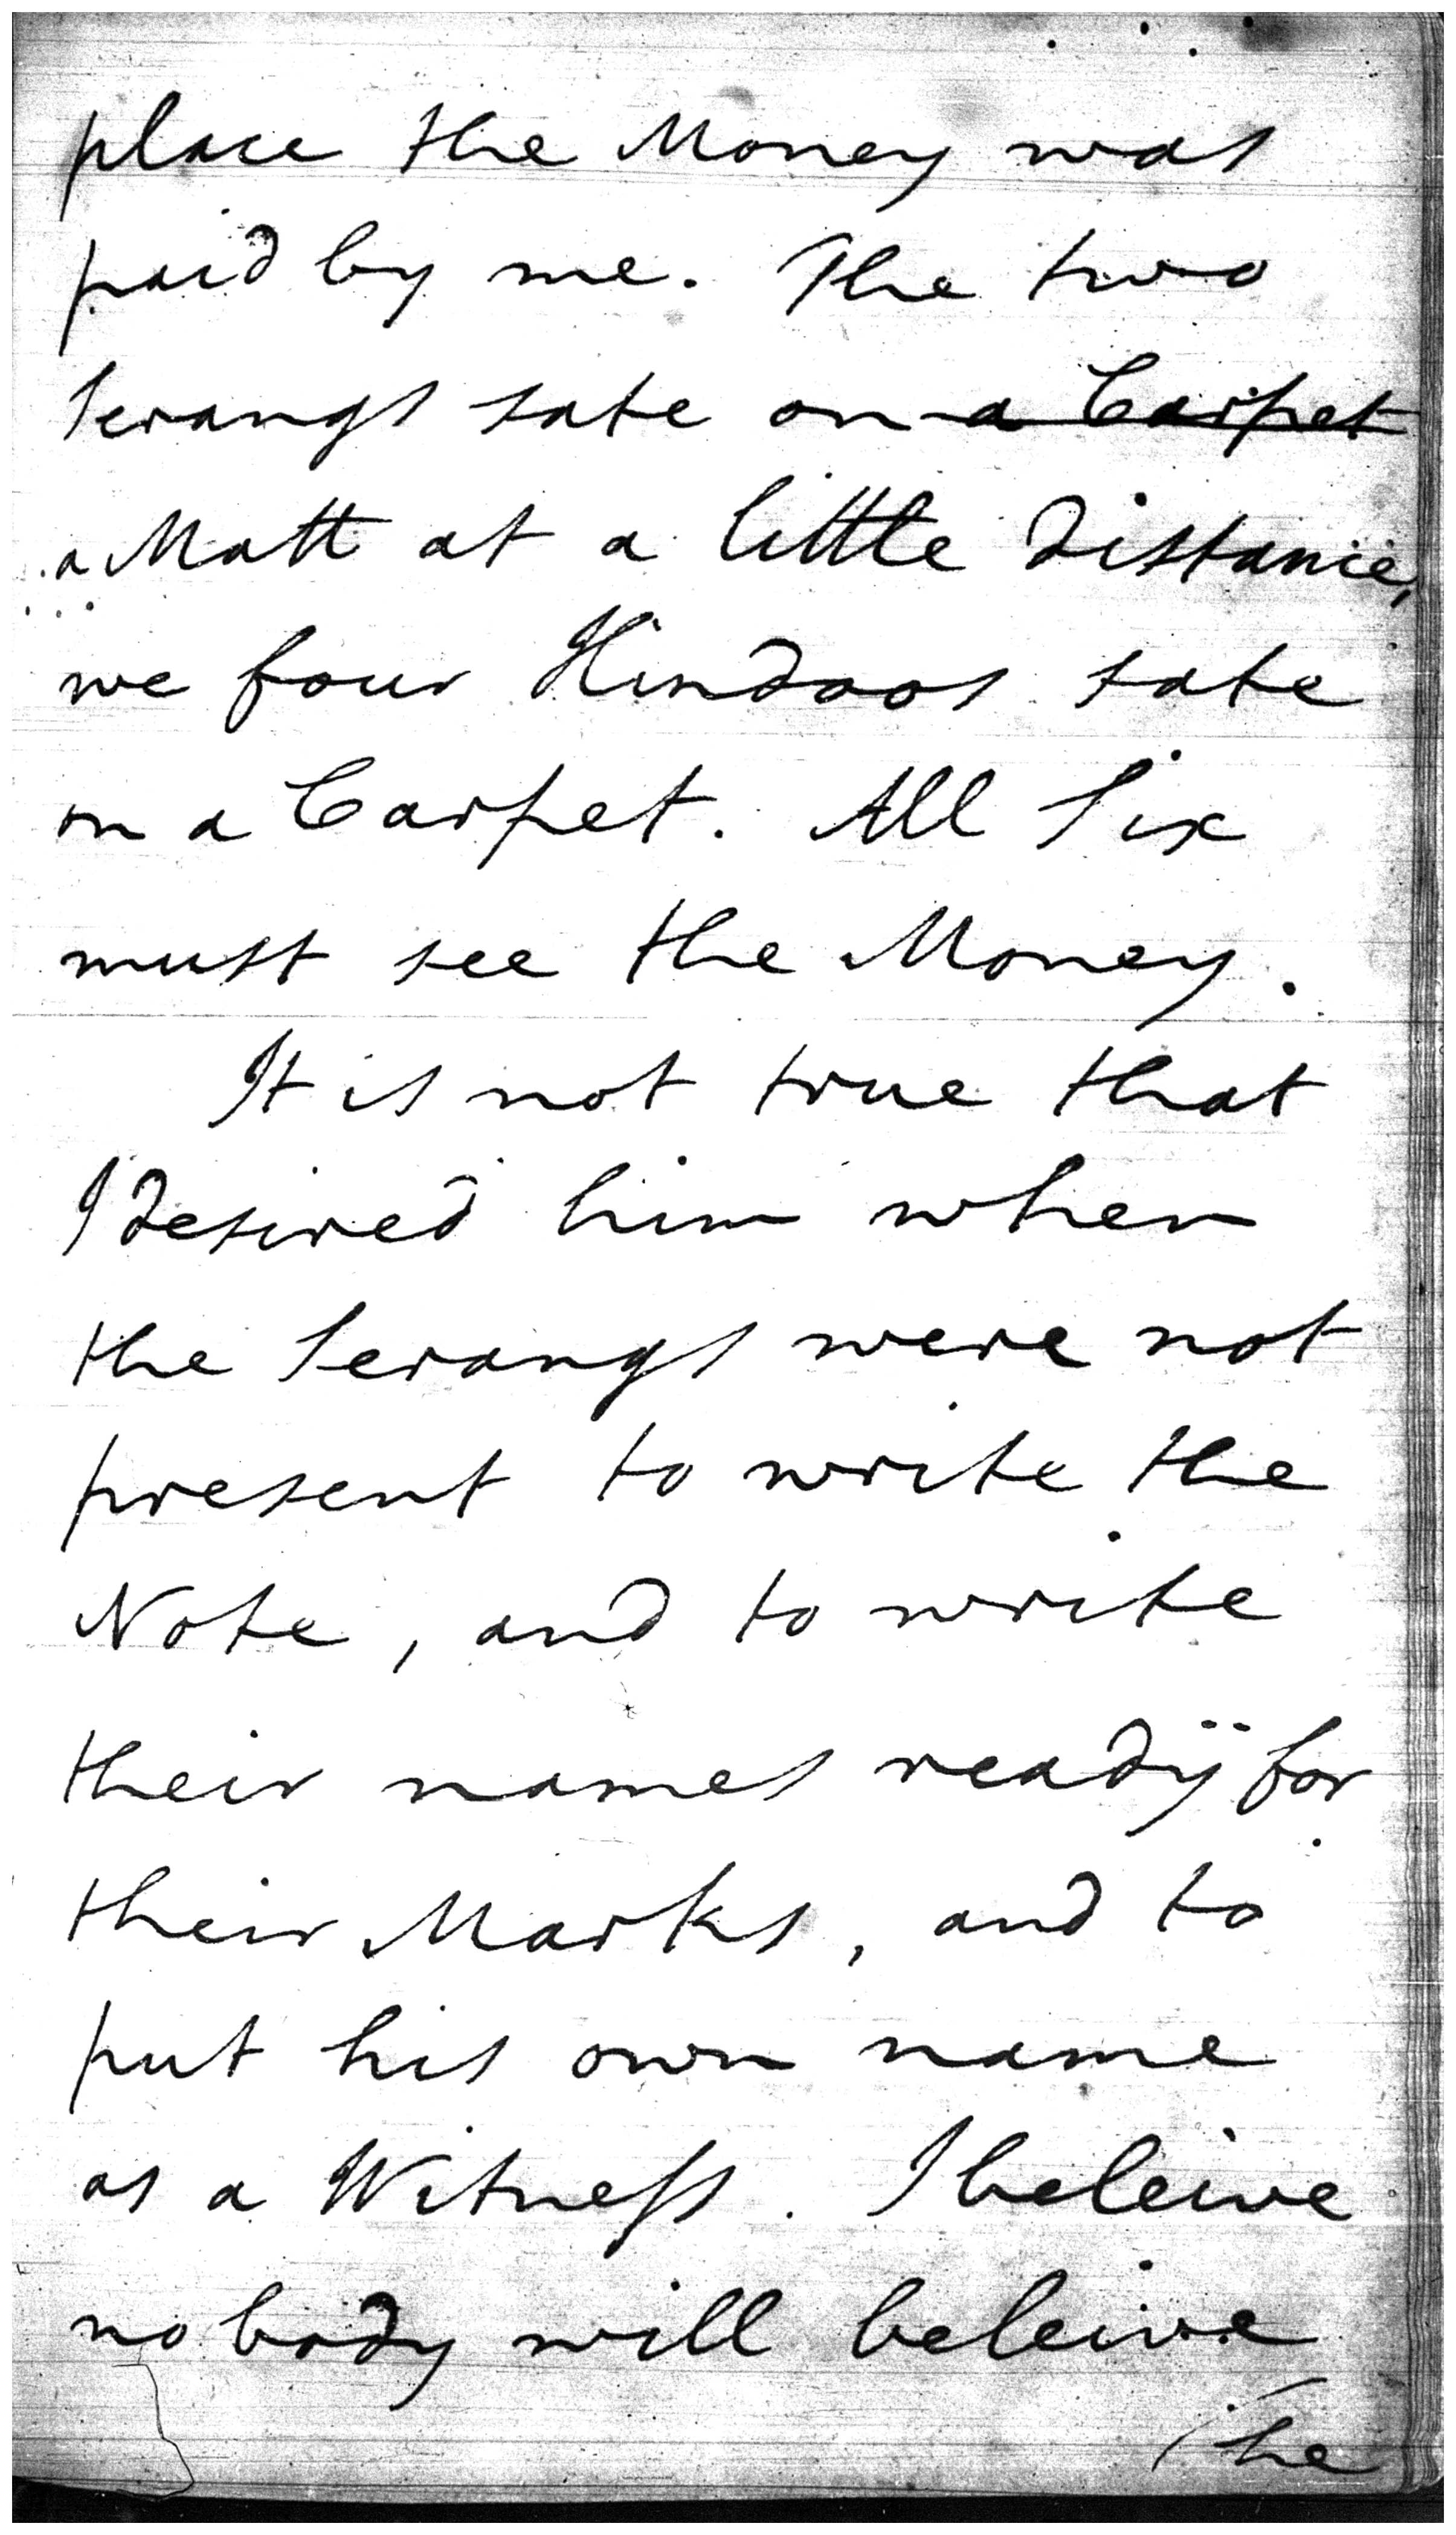 place the Money was
paid by me. The two
Serangs sate on a Carpet
a Matt at a little distance,
we four Hindoos sate
on a Carpet. All Six
must see the Money.
It is not true that
I desired him when
the Serangs were not
present to write the
Note, and to write
their names ready for
their Marks, and to
put his own name
as a Witness. I beleive
no body will beleive
The